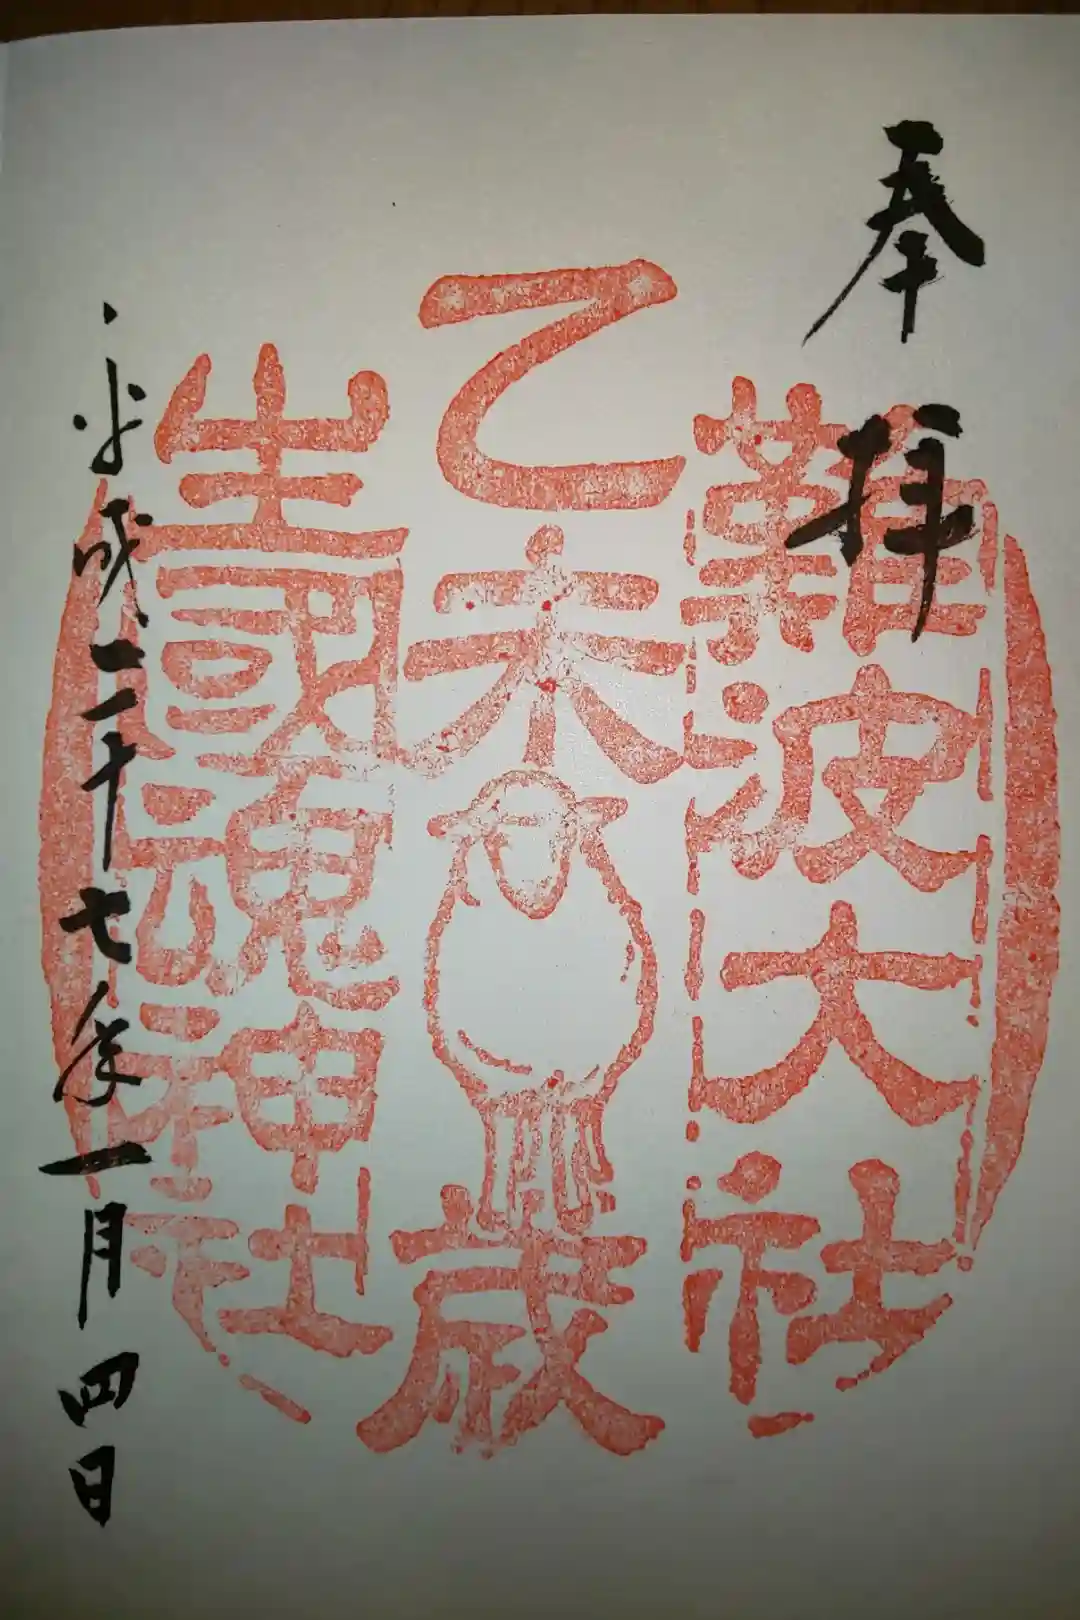 奉拝
難波大社
乙未
歳
生國魂神社
平成二十七年一月四日